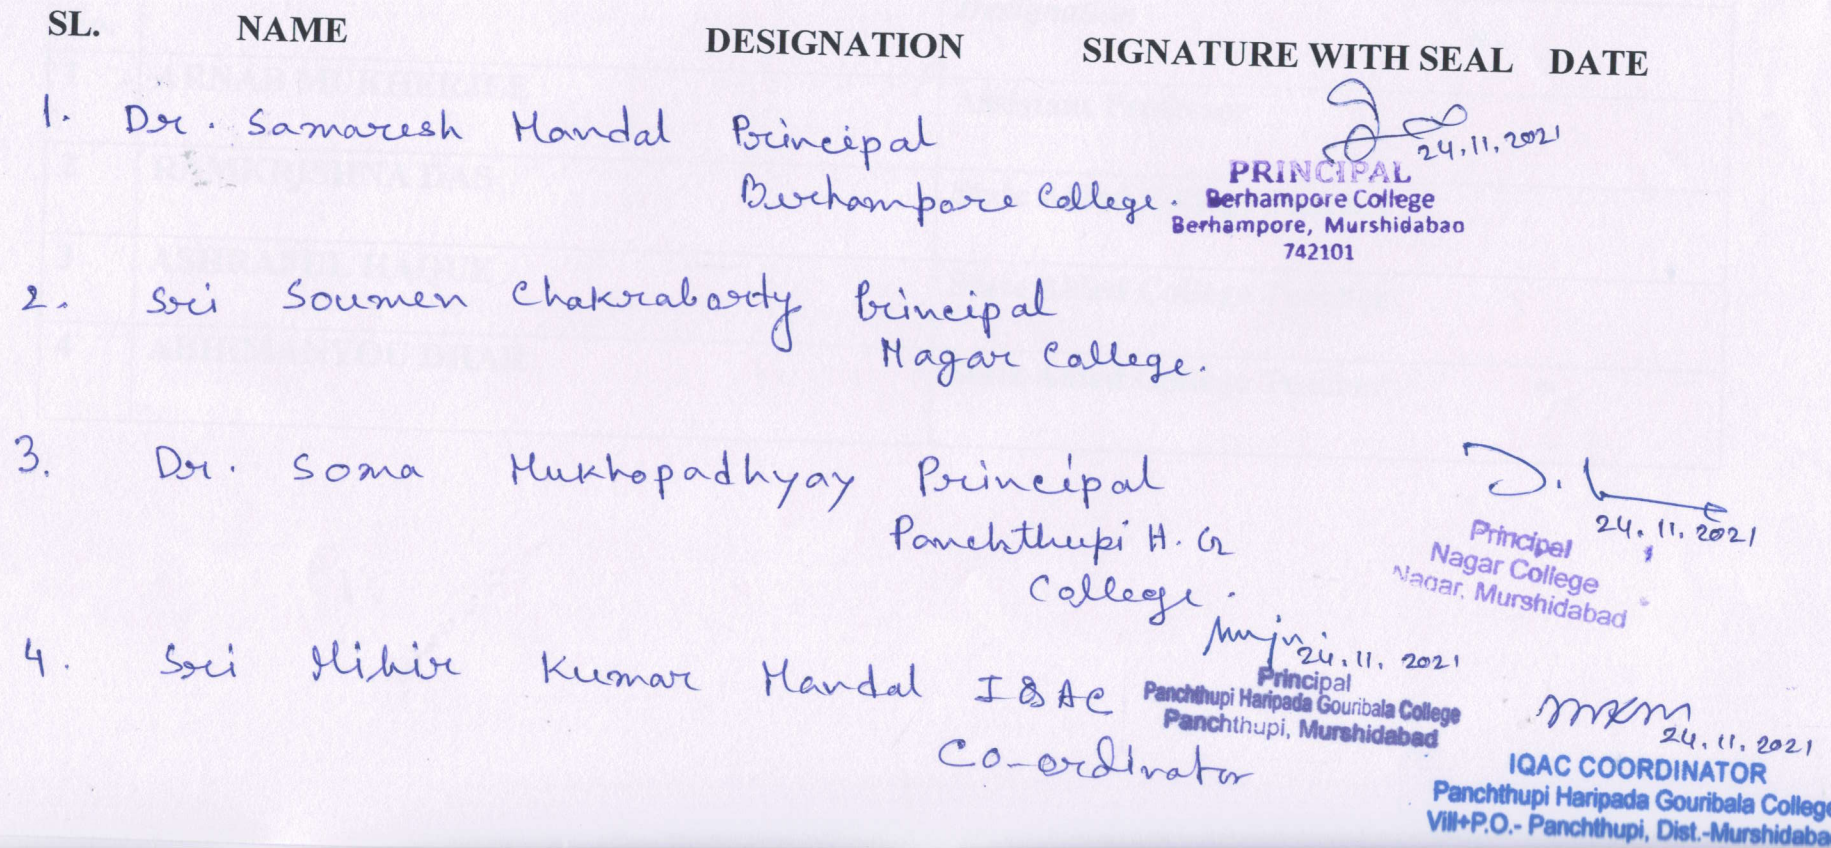 SL. NAME DESIGNATION SIGNATURE WITH SEAL DATE
1. Dr. Samaresh Mandal Principal
24.11.2021
Berhampore College.
PRINCIPAL
Berhampore College
Berhampore, Murshidabad
742101
2. Sri Soumen Chakraborty Principal
Nagar College.
3. Dr. Soma Mukhopadhyay Principal
Panchthupi H. G
College.
24.11.2021
Principal
Nagar College
Nagar, Murshidabad
4. Sri Mihir Kumar Mandal IQAC
Co-ordinator
24.11.2021
Principal
Panchthupi Haripada Gouribala College
Panchthupi, Murshidabad
MKM
24.11.2021
IQAC COORDINATOR
Panchthupi Haripada Gouribala College
Vill+P.O.- Panchthupi, Dist.-Murshidaba
ARNAB MUKHERJEE
Assistant Professor
RAMKRISHNA DAS